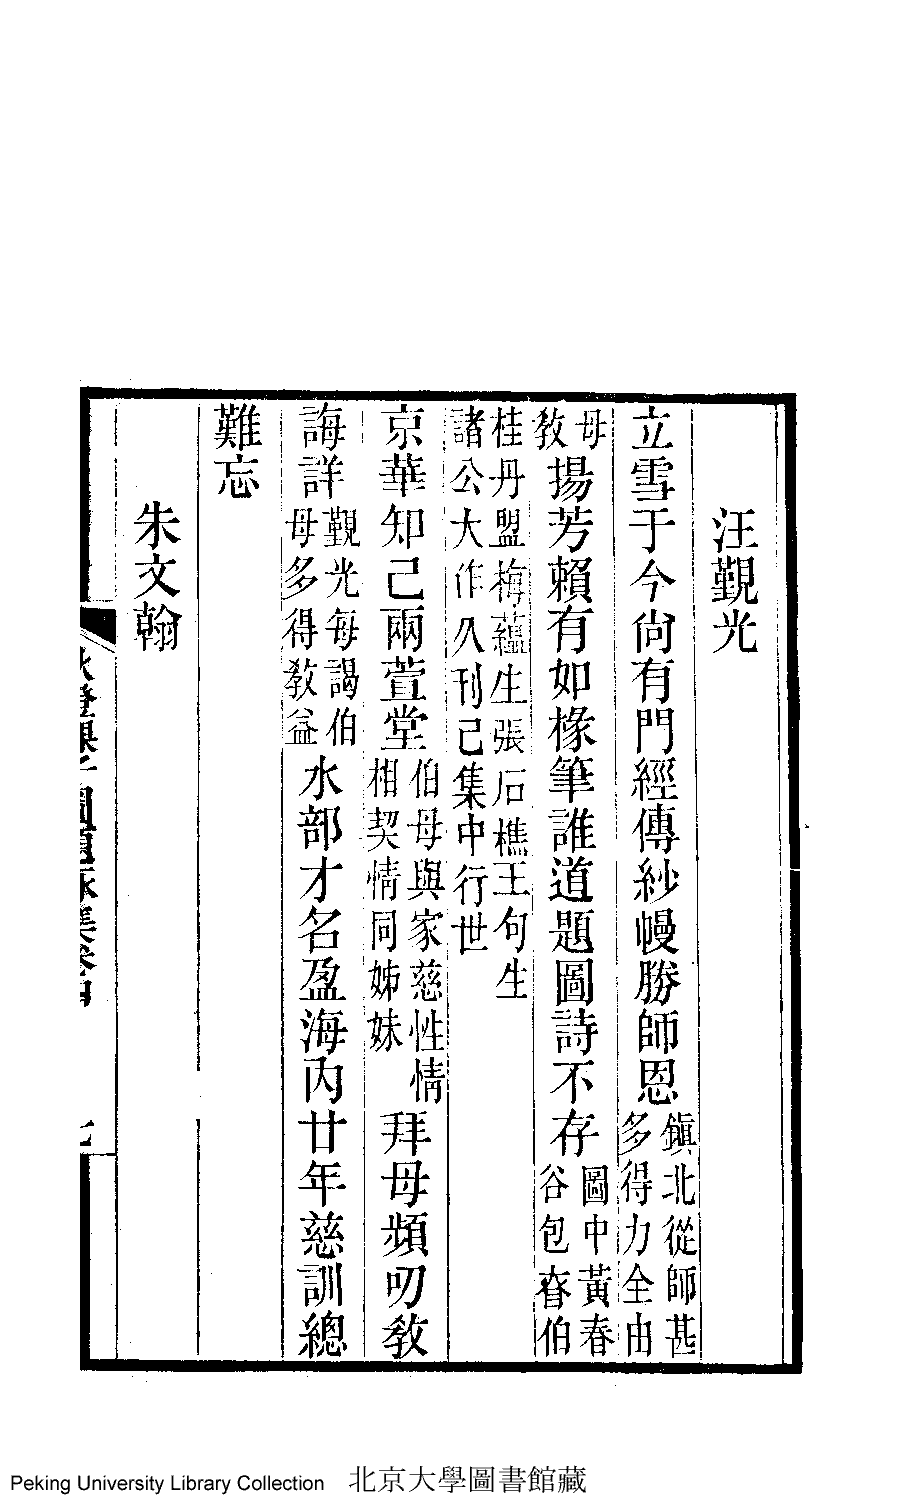 汪覲光
立雪于今尙有門經傳紗幔勝師恩鎮北從師甚多得力全由
母教揚芳賴有如椽筆誰道題圖詩不存圖中黃春谷包眘伯
桂丹盟梅蘊生張石樵王句生諸公大作久刊己集中行世
京華知己兩萱堂伯母與家慈性情相契情同姊妹拜母頻叨教
誨詳覲光每謁伯母多得教益水部才名盈海內廿年慈訓總
難忘
朱文翰
課子圖題詠集卷四
七
Peking University Library Collection 北京大學圖書館藏